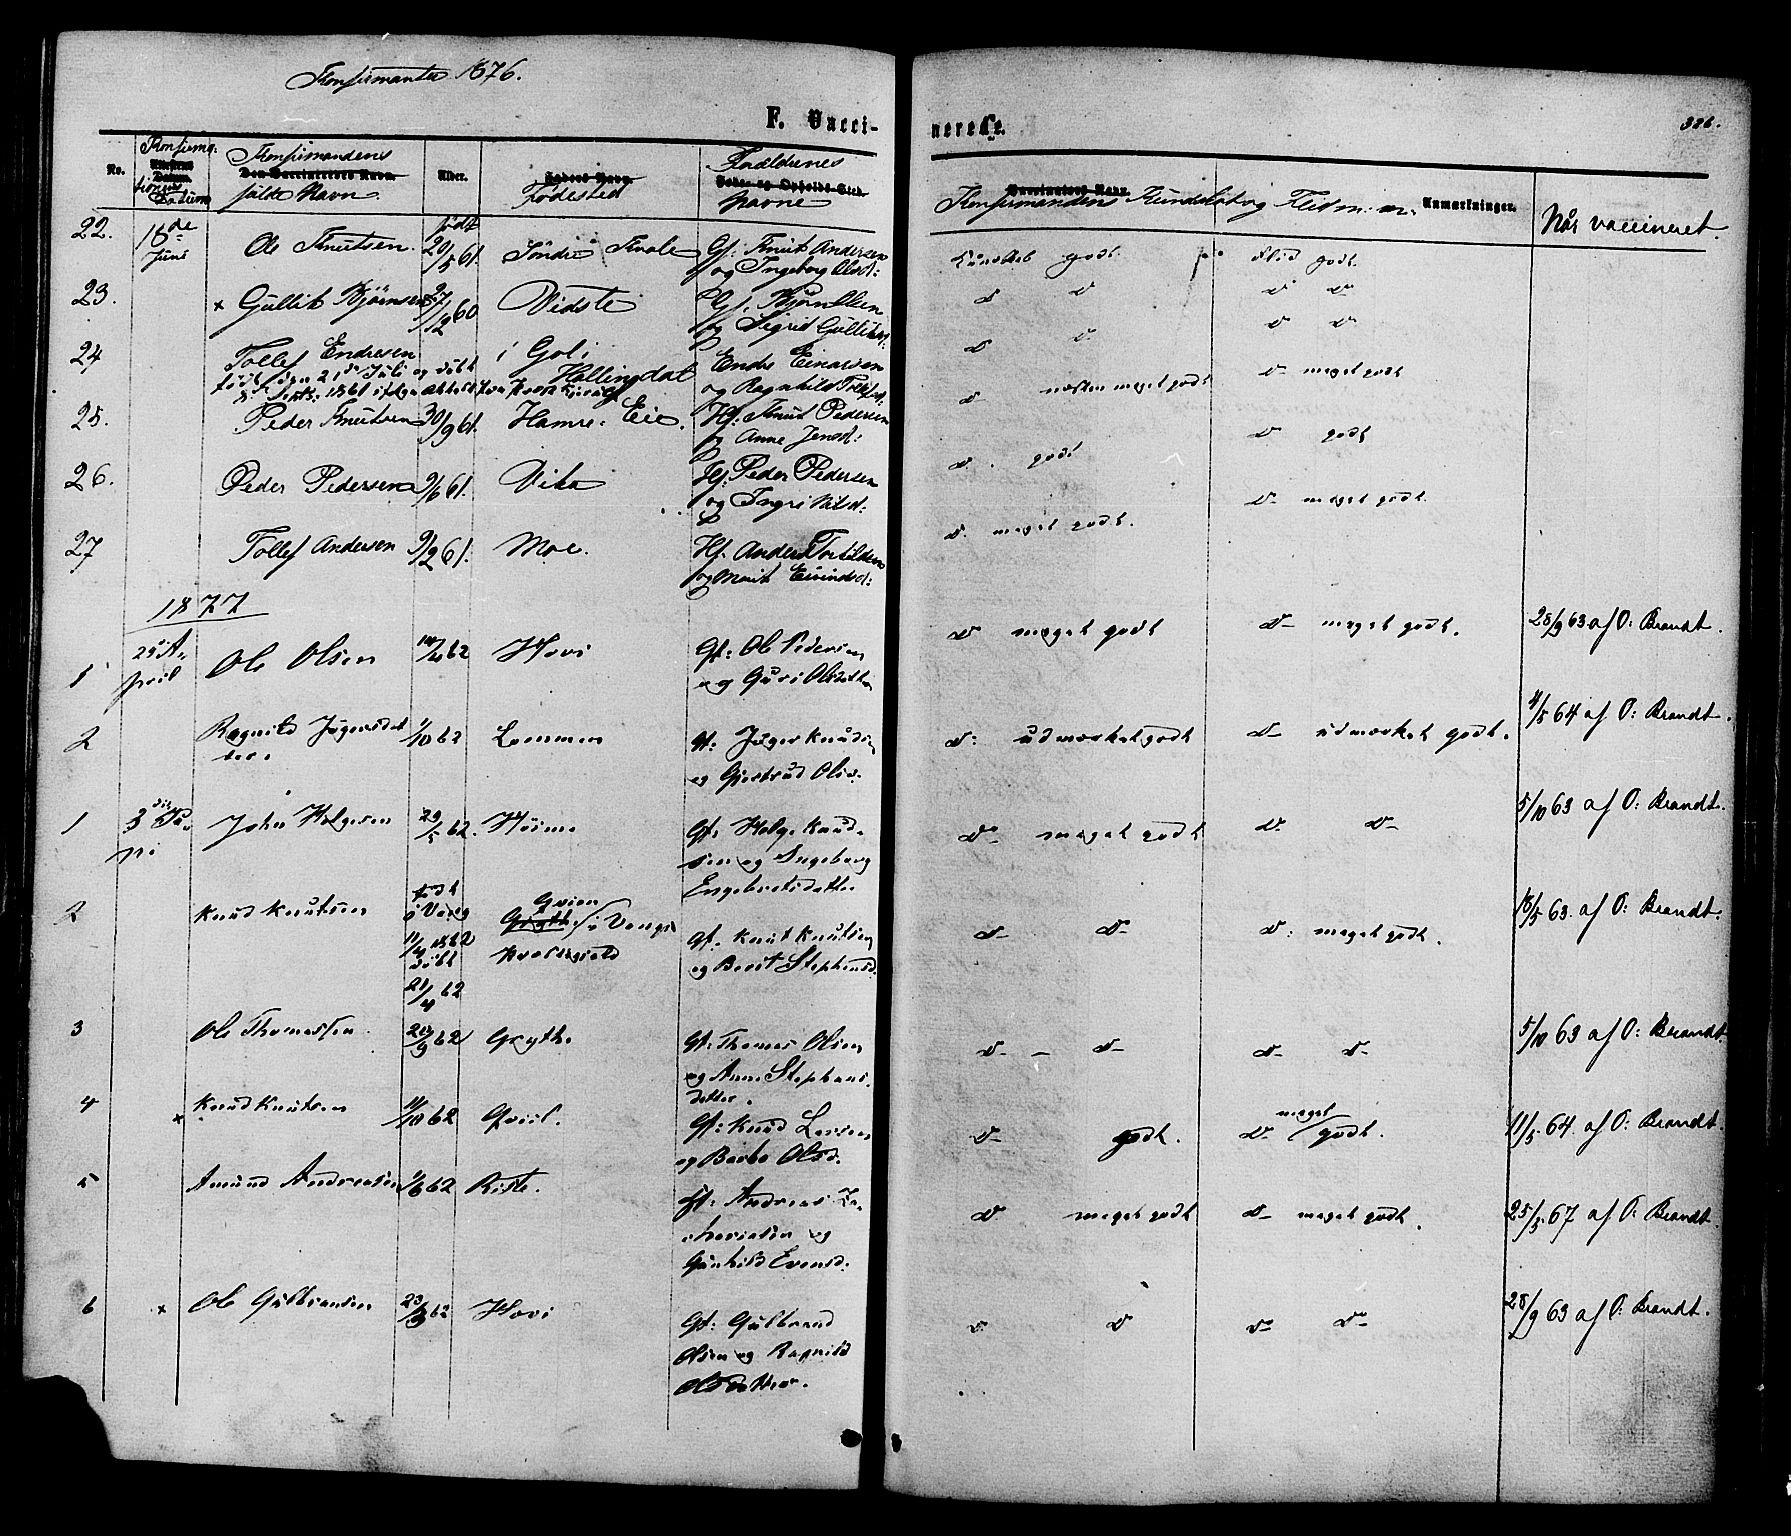 Konfirmanter 1876.
F. Vacci-
nerede.
326.
No. Konfirma-
tionens
Datum Konfirmandens
fulde Navn. Alder. Fødested Forældrenes
Navne Konfirmandens Kundskab og Flid m. m. Anmærkninger. Når vaccineret.
22. 18de Juni Ole Knutsen. født 20/5 61. Søndre Kvale Gf: Knut Andersen
og Ingeborg Olsd: Kundskab godt. Flid godt.
23. × Gullik Bjørnsen 27/2 60 Vidste Gf. Bjørn Olsen
og Sigrid Gulliksd: d d d d
24 Tollef Endresen i Gol i
Hallingdal Endre Einarsen
og Ragnhild Tollefsd: d d d d
født 21de Juli og døbt
8de Septr. 1861 ifølge Attest fra
25. Peder Knutsen 30/9 61. Hamre-Eie. Hf: Knut Pedersen
og Anne Jensd: d næsten meget godt d meget godt
26. Peder Pedersen 9/6 61. Vika Hf: Peder Pedersen
og Ingri Nilsd: d. godt d godt
27 Tollef Andersen 9/2 61. Moe. Hf. Anders Torkildsen
og Marit Eivindsd: d. meget godt. d meget godt
1877
1 25 April Ole Olsen 14/4 62 Hovi Gf: Ole Pedersen
og Guri Olsdatter d meget godt d meget godt. 28/9 63 af O: Brandt.
2 Ragnild Jøgersdat
ter. 1/10 62 Lommen Gf: Jøger Knudsen
og Gjertrud Olsd. d: udmærket godt d udmærket godt. 4/5 64 af O: Brandt.
1 3die Juni John Helgesen 29/5 62. Høime Gf: Helge Knud-
sen og Ingeborg
Engebretsdatter d meget godt d. d 5/10 63 af O: Brandt.
2 Knud Knutsen født
i Vang
11/4 1862
døbt
21/4 62 Qvien
i Vangs
Præstegjeld Gf: Knut Knutsen
og Berit Stephensd. d d d: meget godt. 18/5 63. af O: Brandt.
3 Ole Thomassen. 20/9 62 Grythe Gf: Thomas Olsen
og Anne Stephens-
datter. d d d d 5/10 63 af O: Brandt
4 × Knud Knutsen 11/10 62 Qviil. Gf: Knud Larsen
og Barbo Olsd. d godt. d meget godt. 11/5 64. af O: Brandt.
5 Amund Andreasen 1/6 62 Riste. Gf: Andreas Za-
chariasen og
Gunhild Evensd. d meget godt d meget godt. 25/5 67 af O: Brandt.
6 × Ole Gulbransen 23/3 62 Hovi Gf: Gulbrand
Olsen og Ragnild
Olsdatter. d d d d 28/9 63 af O: Brandt.